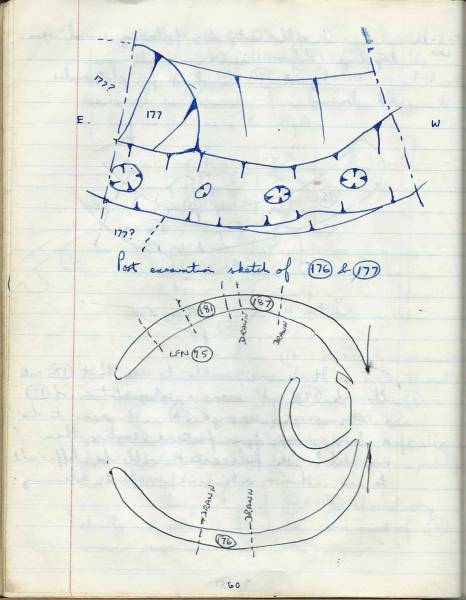 177?
177
E.
W
177?
Post excavation sketch of (176) & (177)
(181)
(187)
DRAWN
DRAWN
(95)
DRAWN
DRAWN
(176)
60